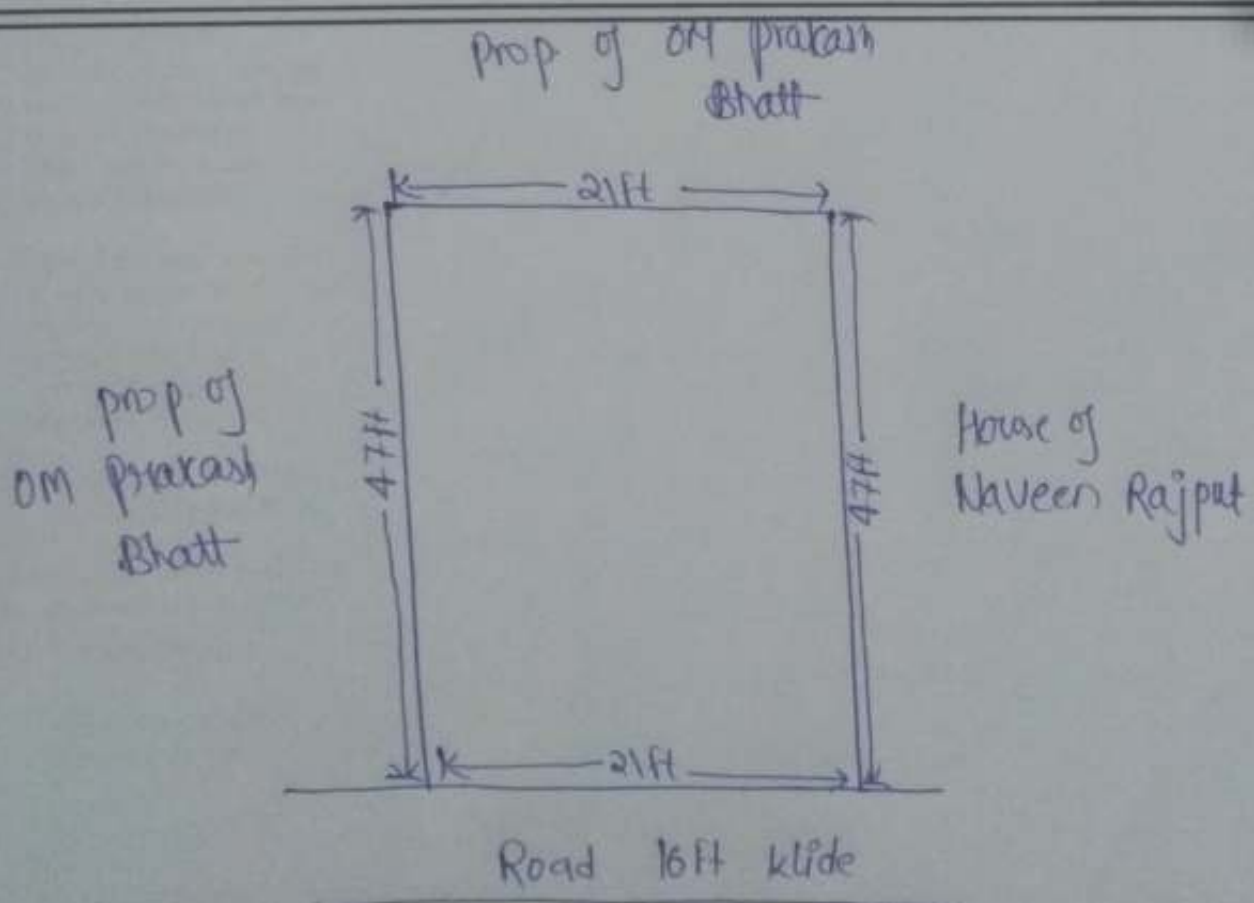 Prop of OM Prakash
Bhatt
21ft
47ft
prop of
OM Prakash
Bhatt
47ft
House of
Naveen Rajput
21ft
Road 16ft Wide